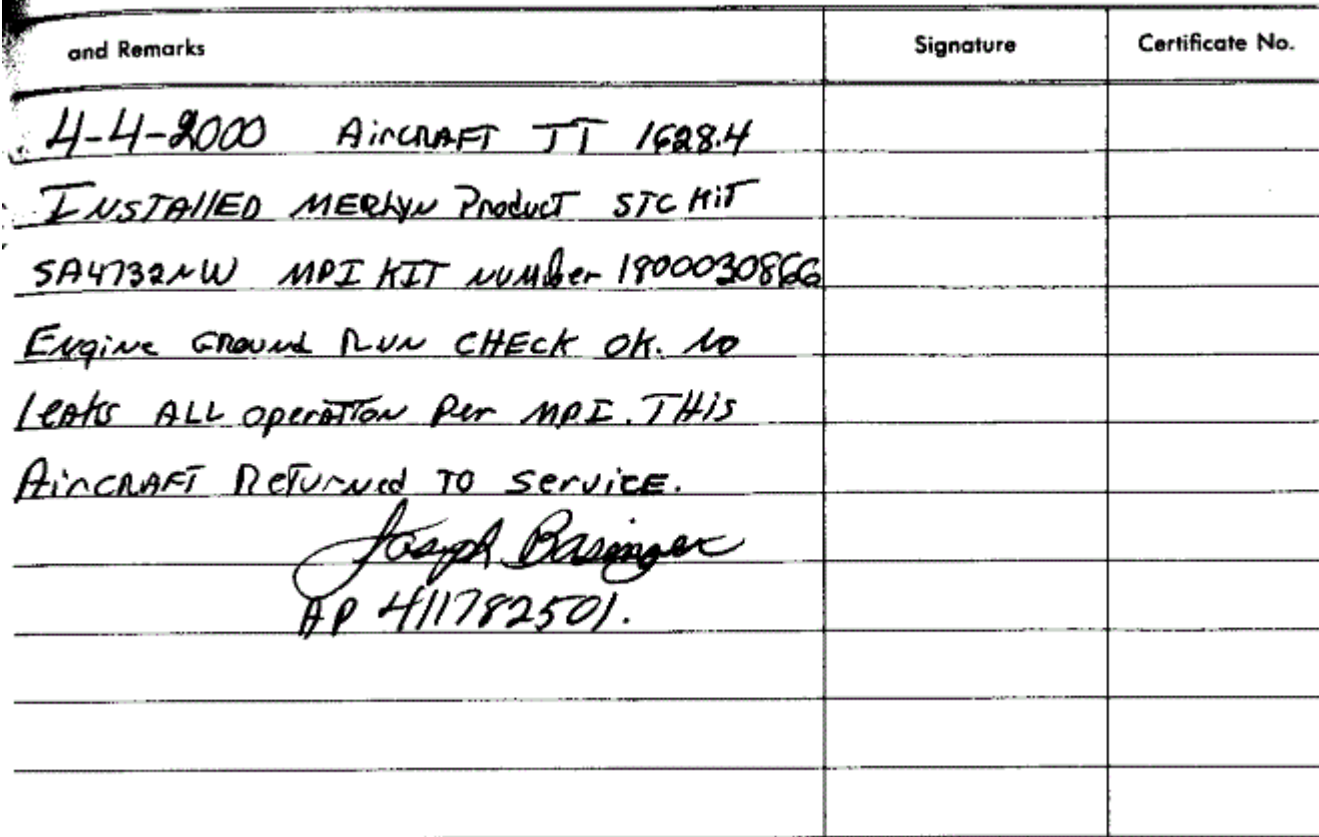 and Remarks Signature Certificate No.
4-4-2000 AirCRAFT TT 1628.4
INSTAllED MERLYN Product STC KiT
SA4732NW MPI KIT NUMBer 1800030866
Engine Ground Run CHECK OK. NO
leaks ALL operATion Per MPI. THis
AirCRAFT ReTurned TO ServiCE.
Joseph Basinger
AP 411782501.